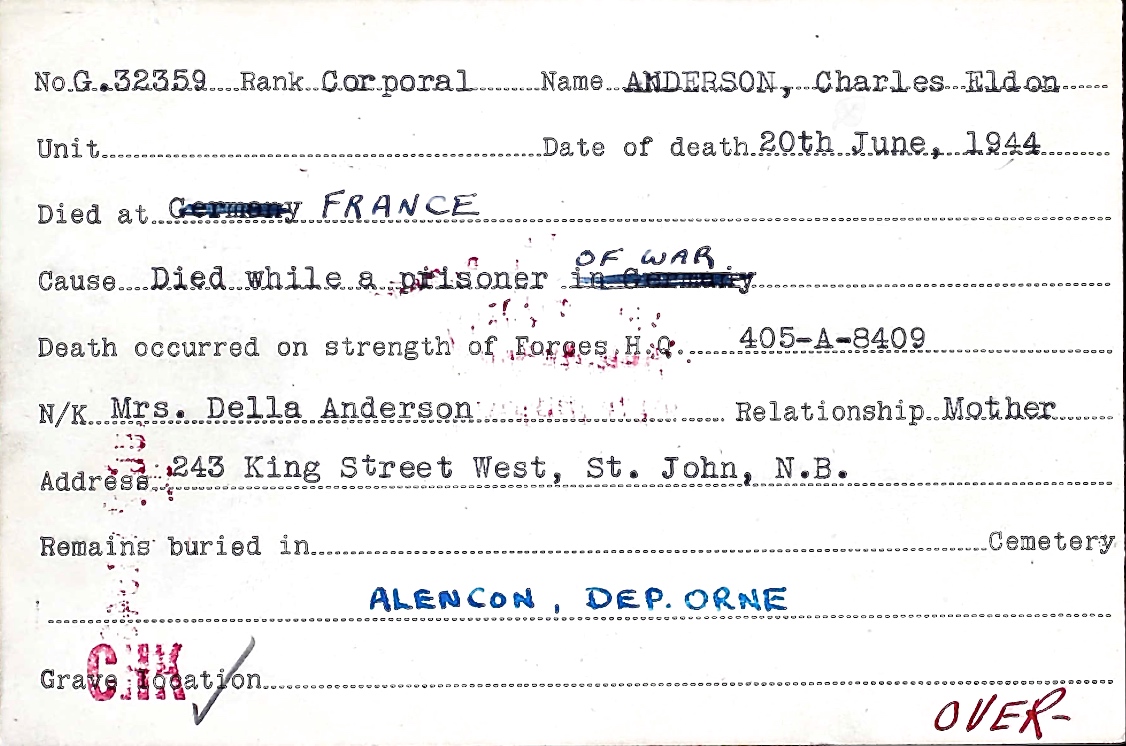 No. G.32359 Rank Corporal Name ANDERSON, Charles Eldon
Unit Date of death 20th June, 1944
Died at Germany FRANCE
OF WAR
Cause Died while a prisoner in Germany
Death occurred on strength of Forces H.Q. 405-A-8409
N/K Mrs. Della Anderson Relationship Mother
Address 243 King Street West, St. John, N.B.
Remains buried in Cemetery
ALENCON, DEP. ORNE
Grave location
CHK
OVER-